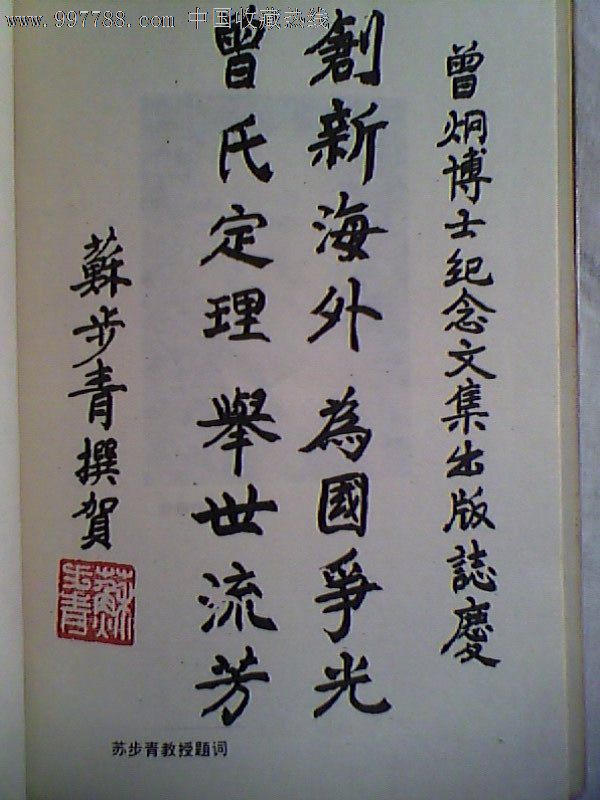 www.997788.com 中国收藏热线
曾炯博士纪念文集出版誌慶
創新海外 為國爭光
曾氏定理 舉世流芳
蘇步青撰賀
蘇步青
苏步青教授题词